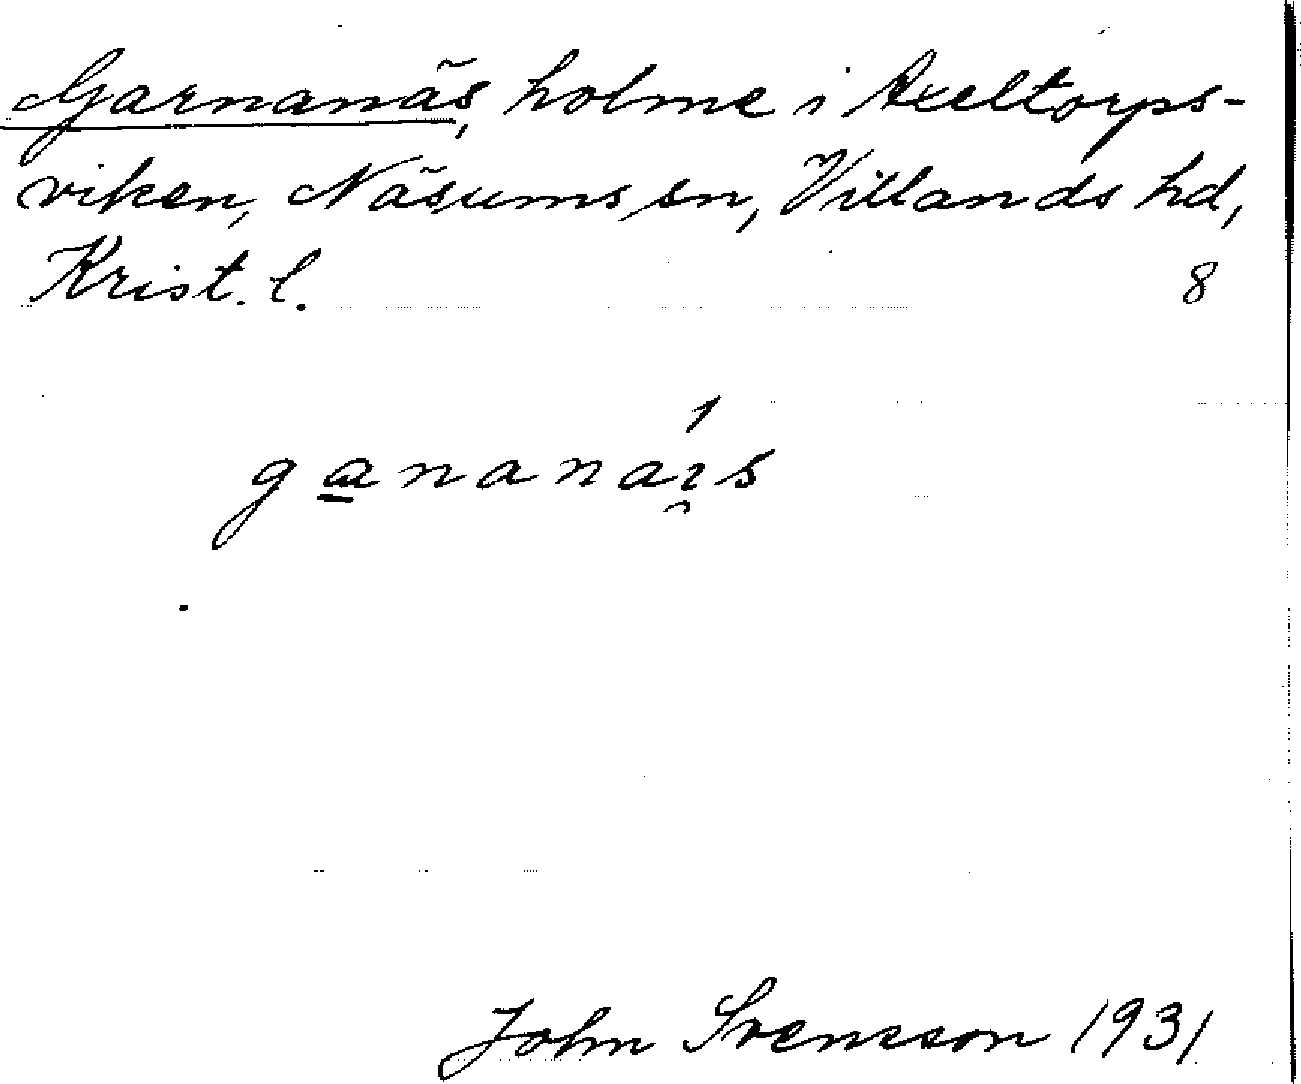 Garnanäs, holme i Axeltorps-
viken, Näsums sn, Villands hd,
Krist. l. 8
gananáıs
John Svensson 1931